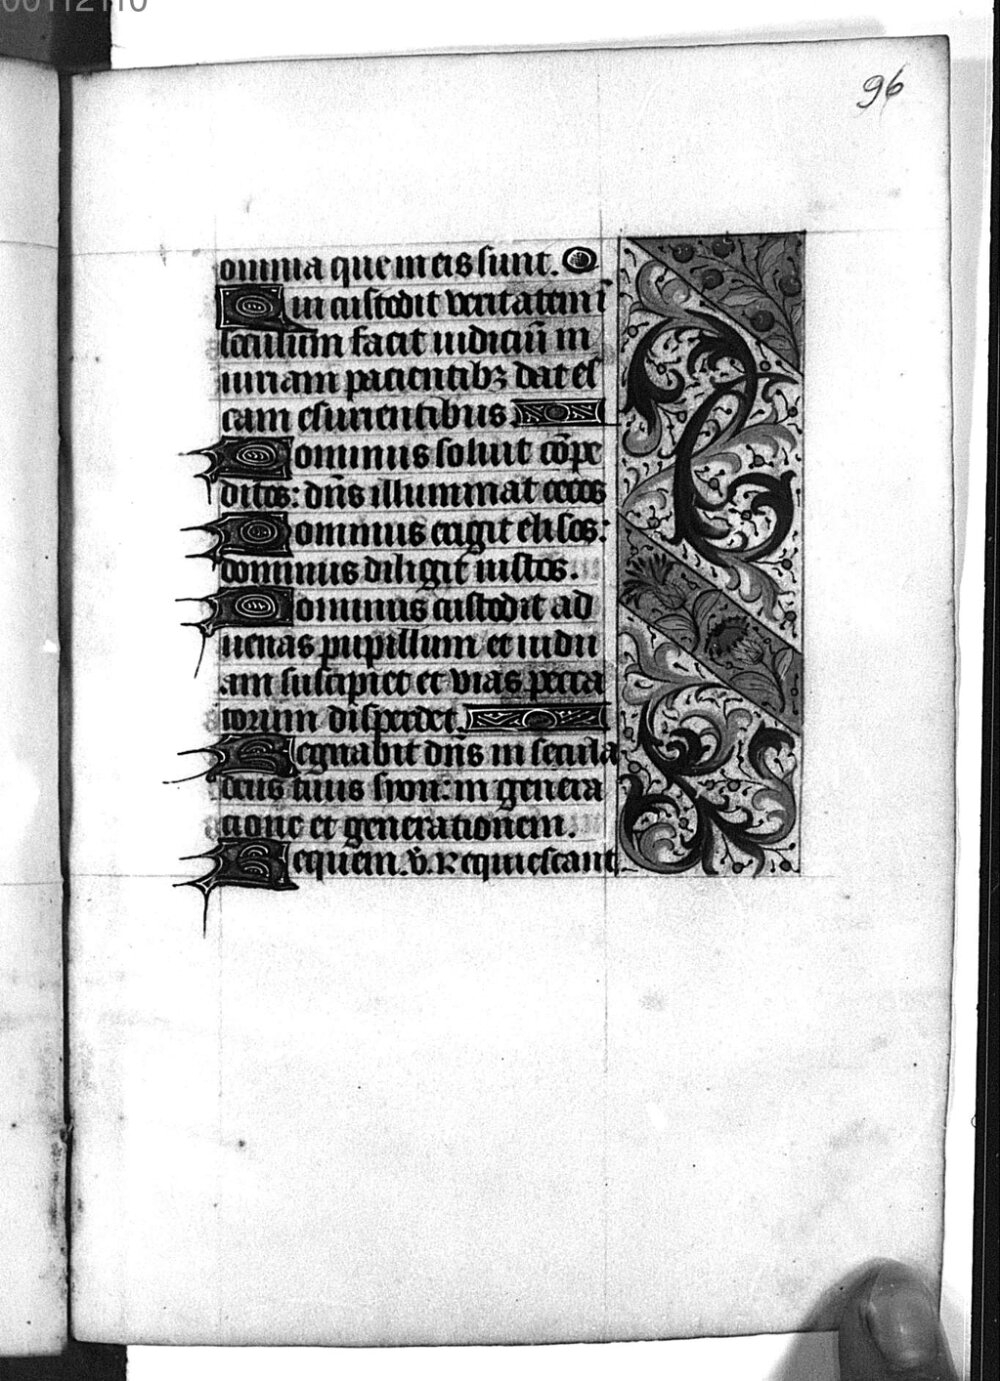 00112110
96
omnia que in eis sunt.
Qui custodit veritatem ī
seculum facit iudiciū in
iuriam pacientibꝫ dat es
cam esurientibus.
Dominus soluit cōpe
ditos: dn̄s illuminat cecos
Dominus erigit elisos:
dominus diligit iustos.
Dominus custodit ad
uenas pupillum et uidu
am suscipiet et vias pecca
torum disperdet.
Regnabit dn̄s in secula
deus tuus syon: in genera
cione et generationem.
Requiem. v̄. Requiescant